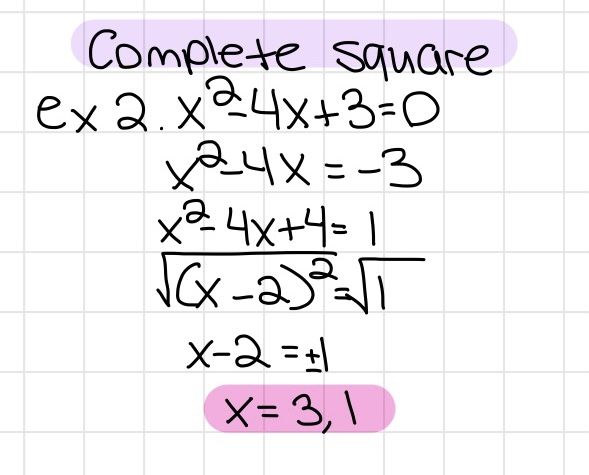 Complete square
ex 2. x²-4x+3=0
x²-4x = -3
x²-4x+4= 1
√(x-2)²=√1
x-2 = ±1
x= 3, 1